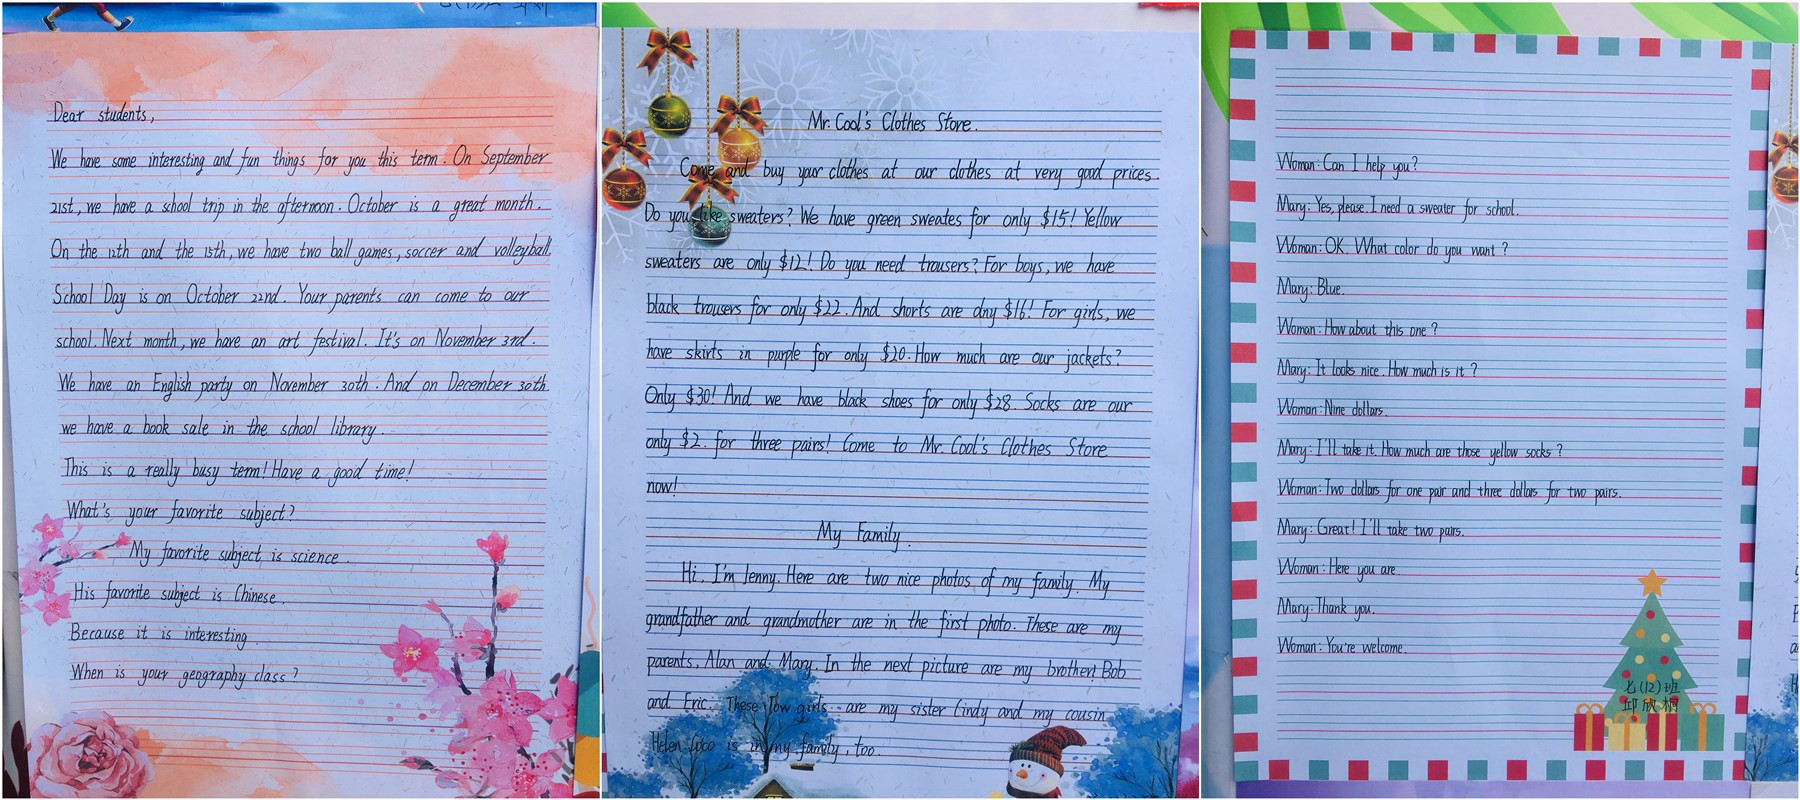 Dear students,
We have some interesting and fun things for you this term. On September
21st, we have a school trip in the afternoon. October is a great month.
On the 12th and the 15th, we have two ball games, soccer and volleyball.
School Day is on October 22nd. Your parents can come to our
school. Next month, we have an art festival. It's on November 3rd.
We have an English party on November 30th. And on December 30th
we have a book sale in the school library.
This is a really busy term! Have a good time!
What's your favorite subject?
My favorite subject is science.
His favorite subject is Chinese.
Because it is interesting.
When is your geography class?
Mr. Cool's Clothes Store.
Come and buy your clothes at our clothes at very good prices.
Do you like sweaters? We have green sweates for only $15! Yellow
sweaters are only $12! Do you need trousers? For boys, we have
black trousers for only $22. And shorts are only $16! For girls, we
have skirts in purple for only $20. How much are our jackets?
Only $30! And we have black shoes for only $28. Socks are our
only $2. for three pairs! Come to Mr. Cool's Clothes Store
now!
My Family.
Hi, I'm Jenny. Here are two nice photos of my family. My
grandfather and grandmother are in the first photo. These are my
parents, Alan and Mary. In the next picture are my brother! Bob
and Eric. These girls are my sister Cindy and my cousin
Helen Coco is in my family, too.
Woman: Can I help you?
Mary: Yes, please. I need a sweater for school.
Woman: OK. What color do you want?
Mary: Blue.
Woman: How about this one?
Mary: It looks nice. How much is it?
Woman: Nine dollars.
Mary: I'll take it. How much are those yellow socks?
Woman: Two dollars for one pair and three dollars for two pairs.
Mary: Great! I'll take two pairs.
Woman: Here you are.
Mary: Thank you.
Woman: You're welcome.
七(12)班
邱欣